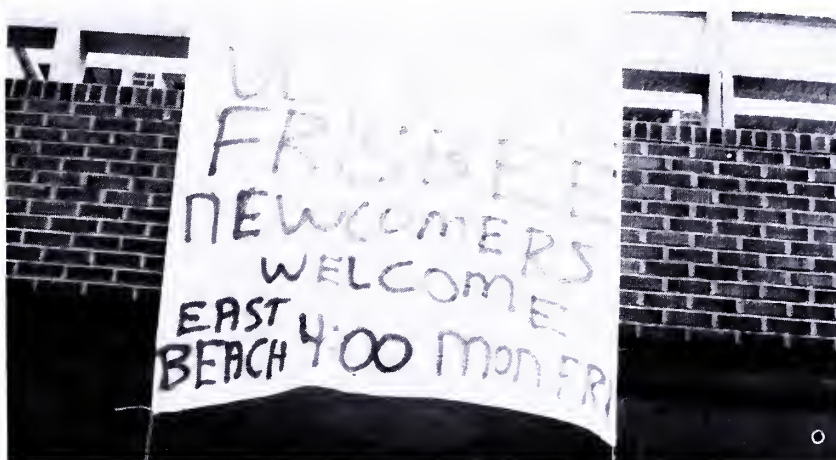 FRISBEE
NEWCOMERS
WELCOME
EAST
BEACH 4:00 MON FRI